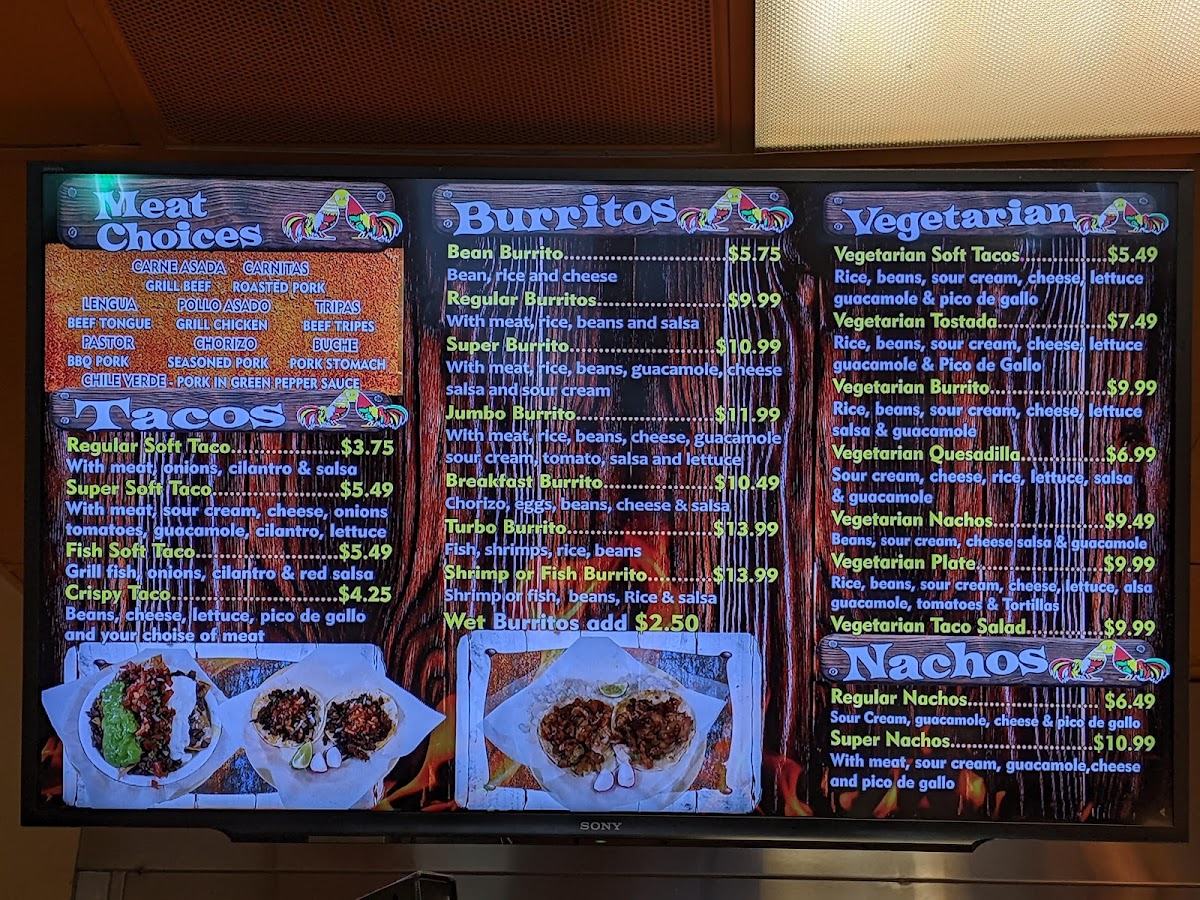 Meat
Choices
CARNE ASADA CARNITAS
GRILL BEEF ROASTED PORK
LENGUA POLLO ASADO TRIPAS
BEEF TONGUE GRILL CHICKEN BEEF TRIPES
PASTOR CHORIZO BUCHE
BBQ PORK SEASONED PORK PORK STOMACH
CHILE VERDE - PORK IN GREEN PEPPER SAUCE
Tacos
Regular Soft Taco............$3.75
With meat, onions, cilantro & salsa
Super Soft Taco............$5.49
With meat, sour cream, cheese, onions
tomatoes, guacamole, cilantro, lettuce
Fish Soft Taco............$5.49
Grill fish, onions, cilantro & red salsa
Crispy Taco............$4.25
Beans, cheese, lettuce, pico de gallo
and your choise of meat
Burritos
Bean Burrito............$5.75
Bean, rice and cheese
Regular Burritos............$9.99
With meat, rice, beans and salsa
Super Burrito............$10.99
With meat, rice, beans, guacamole, cheese
salsa and sour cream
Jumbo Burrito............$11.99
With meat, rice, beans, cheese, guacamole
sour cream, tomato, salsa and lettuce
Breakfast Burrito............$10.49
Chorizo, eggs, beans, cheese & salsa
Turbo Burrito............$13.99
Fish, shrimps, rice, beans
Shrimp or Fish Burrito............$13.99
Shrimp or fish, beans, Rice & salsa
Wet Burritos add $2.50
Vegetarian
Vegetarian Soft Tacos............$5.49
Rice, beans, sour cream, cheese, lettuce
guacamole & pico de gallo
Vegetarian Tostada............$7.49
Rice, beans, sour cream, cheese, lettuce
guacamole & Pico de Gallo
Vegetarian Burrito............$9.99
Rice, beans, sour cream, cheese, lettuce
salsa & guacamole
Vegetarian Quesadilla............$6.99
Sour cream, cheese, rice, lettuce, salsa
& guacamole
Vegetarian Nachos............$9.49
Beans, sour cream, cheese salsa & guacamole
Vegetarian Plate............$9.99
Rice, beans, sour cream, cheese, lettuce, alsa
guacamole, tomatoes & Tortillas
Vegetarian Taco Salad............$9.99
Nachos
Regular Nachos............$6.49
Sour Cream, guacamole, cheese & pico de gallo
Super Nachos............$10.99
With meat, sour cream, guacamole,cheese
and pico de gallo
SONY